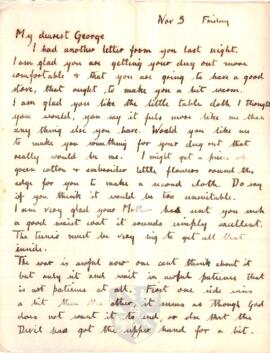 Nov 3 Friday
My dearest George
I had another letter from you last night.
I am glad you are getting your dug out more
comfortable & that you are going to have a good
stove, that ought to make you a bit warm.
I am glad you like the little table cloth I thought
you would, you say it feels more like me than
any thing else you have. Would you like me
to make you something for your dug out that
really would be me. I might get a piece of
green cotton & embroider little flowers round the
edge for you to make a second cloth. Do say
if you think it would be too unsuitable.
I am very glad your Mother has sent you such
a good waist coat it sounds simply excellent.
The tunic must be very big to get all that
inside.
The war is awful now one cant think about it
but only sit and wait in awful patience that
is not patience at all. First one side wins
a bit then the other, it seems as though God
does not want it to end, or else that the
Devil has got the upper hand for a bit.